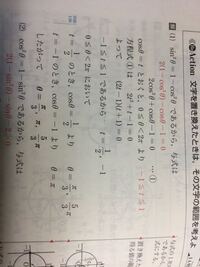 Action 文字を置き換えたときは，その文字の範囲を考えよ
(1) sin²θ＝1－cos²θ であるから，与式は
2(1－cos²θ)－cosθ－1＝0
2cos²θ＋cosθ－1＝0 …①
cosθ＝t とおくと，0≦θ＜2π より －1≦t≦1
方程式①は 2t²＋t－1＝0
よって (2t－1)(t＋1)＝0
－1≦t≦1 であるから t＝1/2，－1
0≦θ＜2π において
t＝1/2 のとき，cosθ＝1/2 より θ＝π/3，5/3π
t＝－1 のとき，cosθ＝－1 より θ＝π
したがって θ＝π/3，π，5/3π
(2) cos²θ＝1－sin²θ であるから，与式は